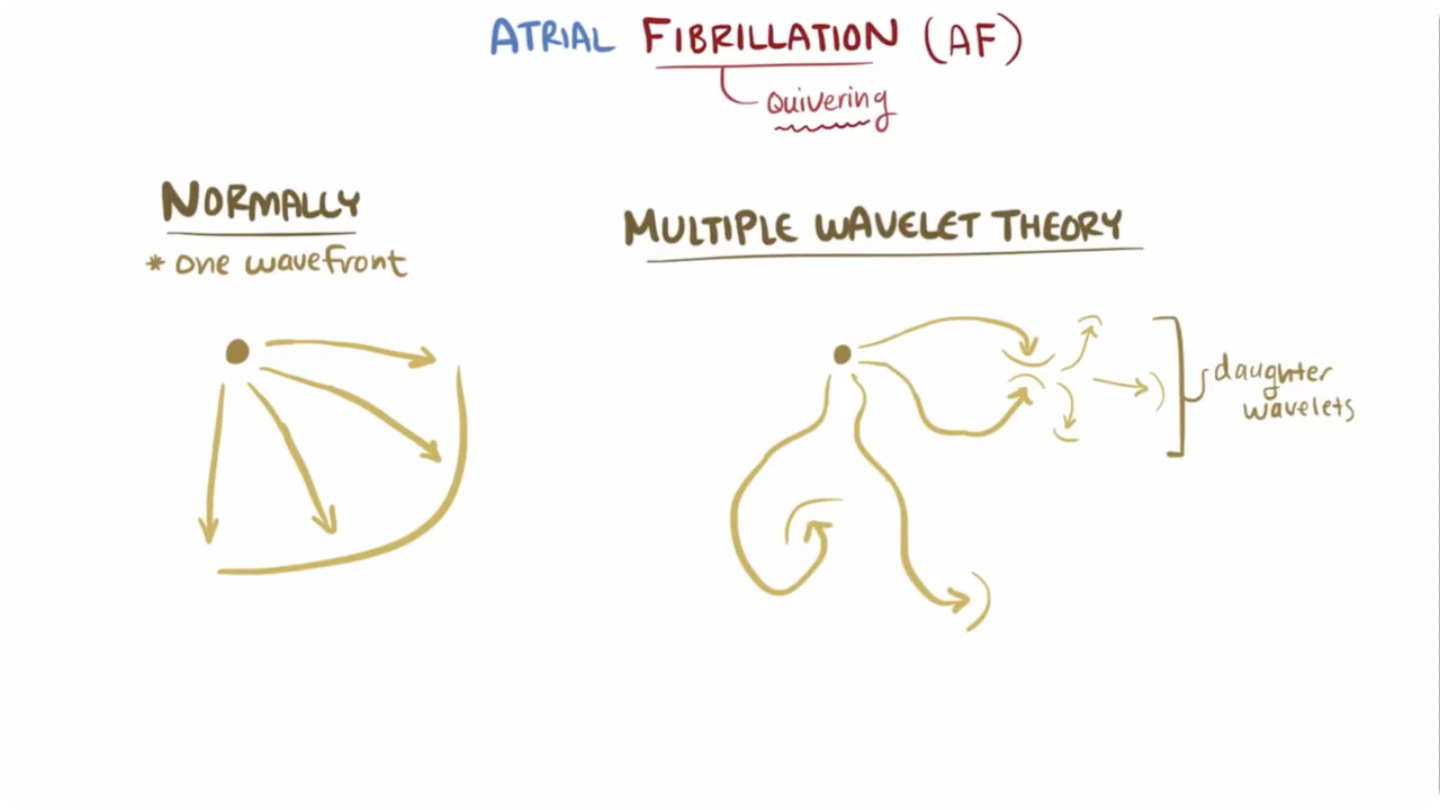 ATRIAL FIBRILLATION (AF)
Quivering
NORMALLY
* one wavefront
MULTIPLE WAVELET THEORY
daughter
wavelets